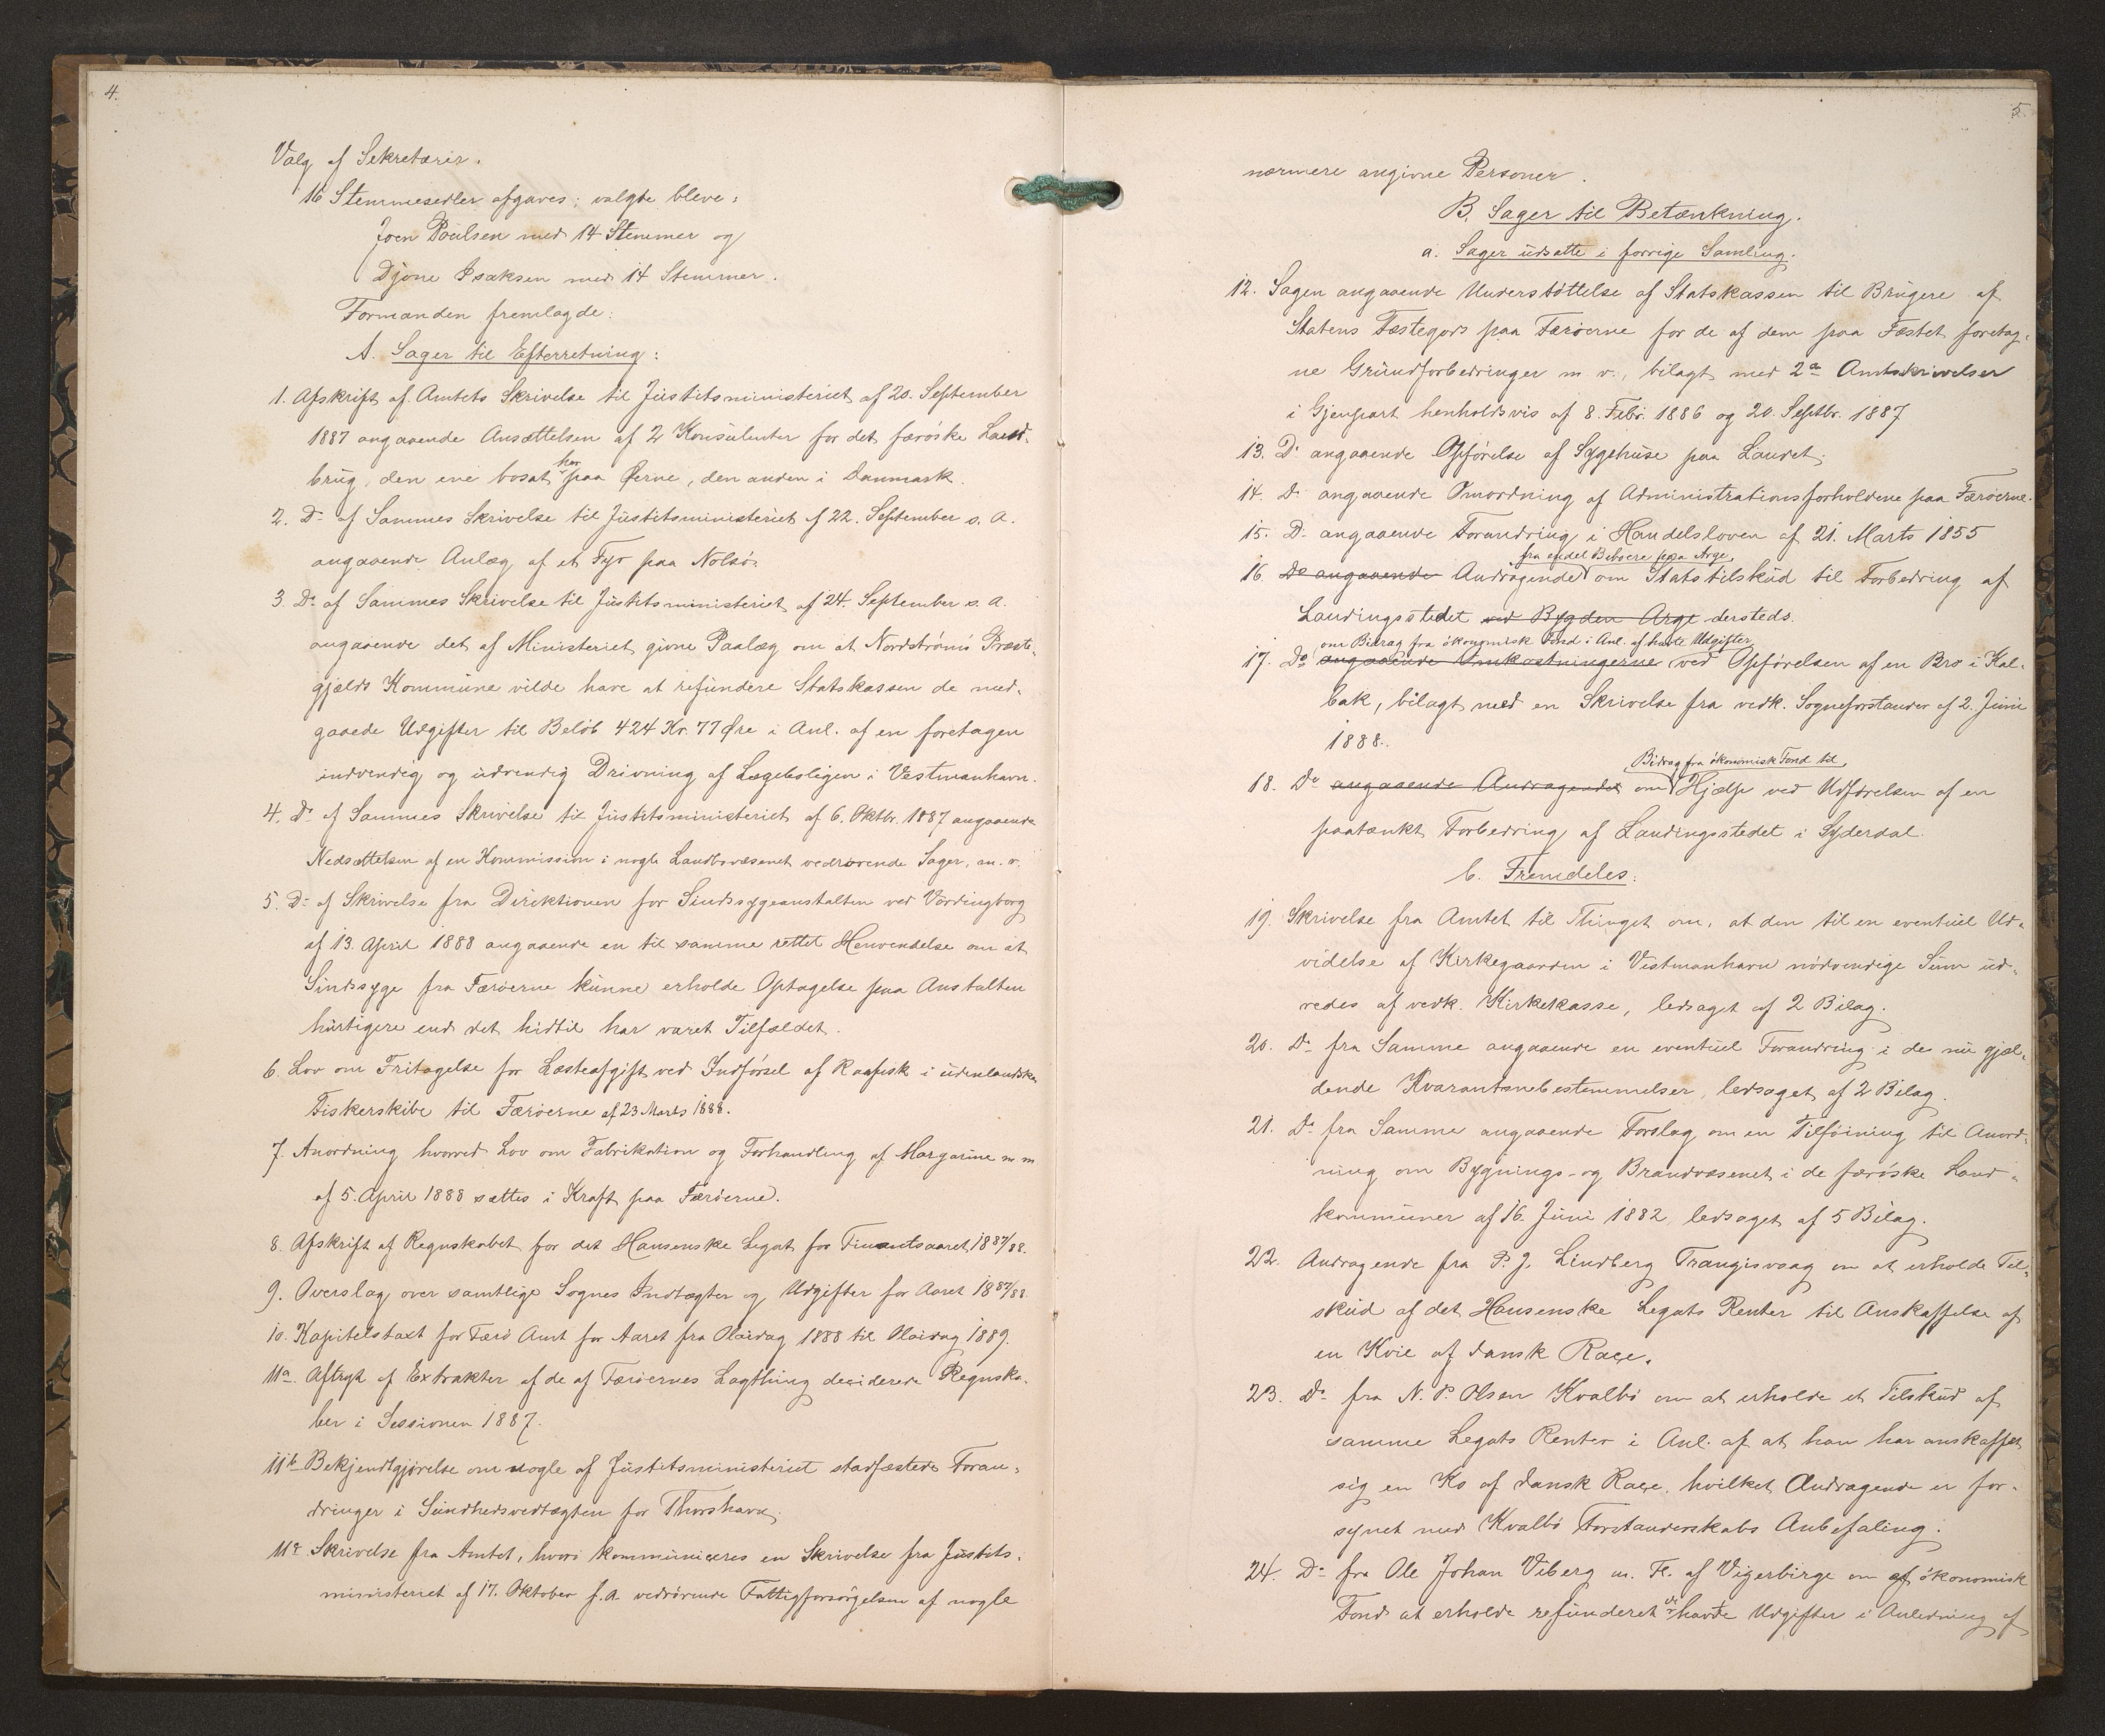 4.
Valg af Sekretærer.
16 Stemmesedler afgaves; valgte bleve:
Joen Poulsen med 14 Stemmer og
Djone Isaksen med 14 Stemmer.
Formanden fremlagde:
A. Sager til Efterretning:
1. Afskrift af Amtets Skrivelse til Justitsministeriet af 20. September
1887 angaaende Ansættelsen af 2 Konsulenter for det færøske Land-
brug, den ene bosat her paa Øerne, den anden i Danmark.
2. Do af Sammes Skrivelse til Justitsministeriet af 22. September s. A.
angaaende Anlæg af et Fyr paa Nolsø.
3. Do af Sammes Skrivelse til Justitsministeriet af 24. September s. A.
angaaende det af Ministeriet givne Paalæg om at Nordstrømø Præste-
gjælds Kommune vilde have at refundere Statskassen de med-
gaaede Udgifter til Beløb 424 Kr. 77 Øre i Anl. af en foretagen
indvendig og udvendig Drivning af Lægeboligen i Vestmanhavn.
4. Do af Sammes Skrivelse til Justitsministeriet af 6. Oktbr. 1887 angaaende
Nedsættelsen af en Kommission i nogle Landbovæsenet vedrørende Sager, m. v.
5. Do af Skrivelse fra Direktionen for Sindssygeanstalten ved Vordingborg
af 13. April 1888 angaaende en til samme rettet Henvendelse om at
Sindssyge fra Færøerne kunne erholde Optagelse paa Anstalten
hurtigere end det hidtil har været Tilfældet.
6. Lov om Fritagelse for Læsteafgift ved Indførsel af Raafisk i udenlandske
Fiskerskibe til Færøerne af 23 Marts 1888.
7. Anordning hvorved Lov om Fabrikation og Forhandling af Margarine m. m
af 5. April 1888 sættes i Kraft paa Færøerne.
8. Afskrift af Regnskabet for det Hansenske Legat for Finantsaaret 1887/88.
9. Overslag over samtlige Sognes Indtægter og Udgifter for Aaret 1887/88
10. Kapitelstaxt for Færø Amt for Aaret fra Olaidag 1888 til Olaidag 1889.
11a. Aftryk af Extrakter af de af Færøernes Lagthing deciderede Regnska-
ber i Sessionen 1887.
11b Bekjendtgjørelse om nogle af Justitsministeriet stadfæstede Foran-
dringer i Sundhedsvedtægten for Thorshavn.
11c Skrivelse fra Amtet, hvori kommuniceres en Skrivelse fra Justits-
ministeriet af 17. Oktober f. A. vedrørende Fattigforsørgelsen af nogle
5.
nærmere angivne Personer.
B. Sager til Betænkning.
a. Sager udsatte i forrige Samling.
12. Sagen angaaende Understøttelse af Statskassen til Brugere af
Statens Fæstegods paa Færøerne for de af dem paa Fæstet foretag-
ne Grundforbedringer m. v., bilagt med 2de Amtsskrivelser
i Gjenpart henholdsvis af 8. Febr. 1886 og 20. Septbr. 1887
13. Do angaaende Opførelse af Sygehuse paa Landet.
14. Do angaaende Omordning af Administrationsforholdene paa Færøerne.
15. Do angaaende Forandring i Handelsloven af 21. Marts 1855
fra endel Beboere paa Arge,
16. Do angaaende Andragende om Statstilskud til Forbedring af
Landingsstedet ved Bygden Arge dersteds.
om Bidrag fra økonomisk Fond i Anl. af havte Udgifter
17. Do angaaende Omkostningerne ved Opførelsen af en Bro i Kal-
bak, bilagt med en Skrivelse fra vedk. Sogneforstander af 2. Juni
1888.
Bidrag fra økonomisk Fond til
18. Do angaaende Andragendet om Hjælp ved Udførelsen af en
paatænkt Forbedring af Landingsstedet i Syderdal.
b. Fremdeles:
19. Skrivelse fra Amtet til Thinget om, at den til en eventuel Ud-
videlse af Kirkegaarden i Vestmanhavn nødvendige Sum ud-
redes af vedk. Kirkekasse, ledsaget af 2 Bilag.
20. Do fra Samme angaaende en eventuel Forandring i de nu gjæl-
dende Kvarantænebestemmelser, ledsaget af 2 Bilag.
21. Do fra Samme angaaende Forslag om en Tilføining til Anord-
ning om Bygnings- og Brandvæsenet i de færøske Land-
kommuner af 16. Juni 1882, ledsaget af 5 Bilag.
22. Andragende fra P. J. Lindberg Trangisvaag om at erholde Til-
skud af det Hansenske Legats Renter til Anskaffelse af
en Kvie af dansk Race.
23. Do fra N. P. Olsen Kvalbø om at erholde et Tilskud af
samme Legats Renter i Anl. af at han har anskaffet
sig en Ko af dansk Race, hvilket Andragende er for-
synet med Kvalbø Forstanderskabs Anbefaling.
24. Do fra Ole Johan Viberg m. Fl. af Vigerbirge om af økonomisk
Fond at erholde refunderet havte Udgifter i Anledning af